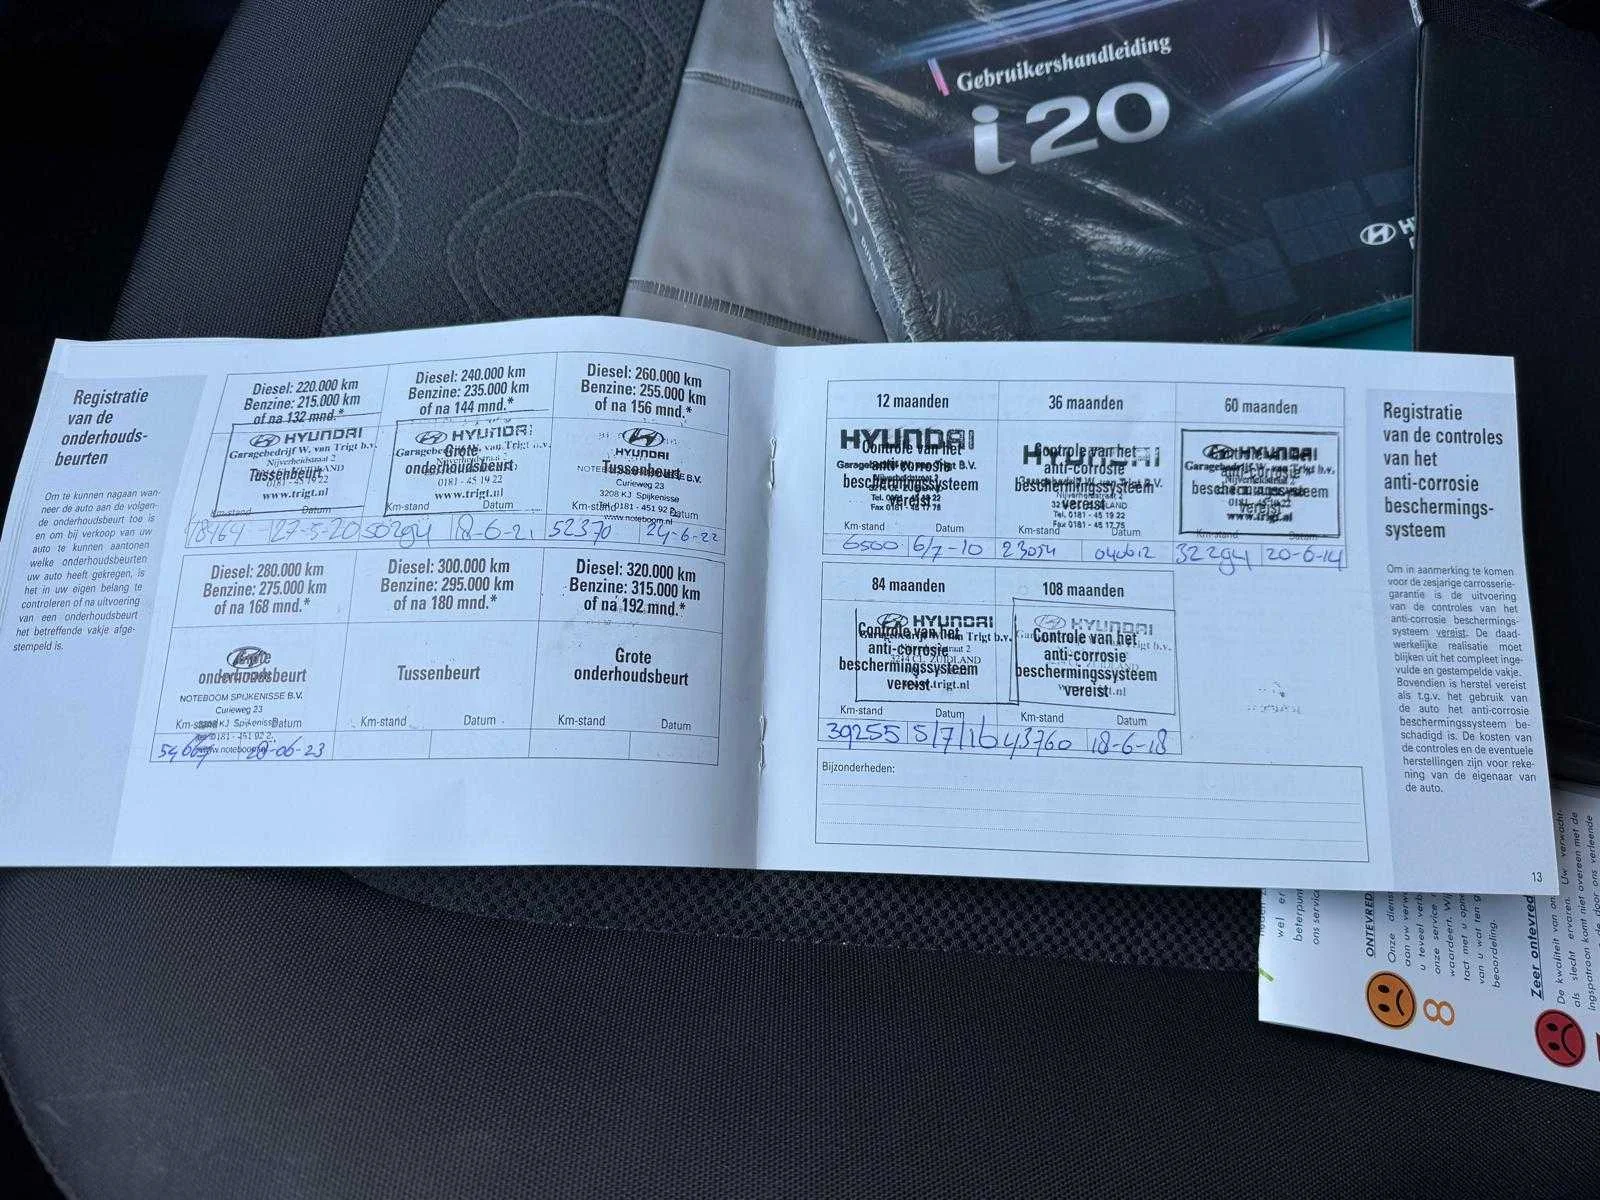 Gebruikershandleiding
i20
i20
Registratie
van de
onderhouds-
beurten
Om te kunnen nagaan wan-
neer de auto aan de volgen-
de onderhoudsbeurt toe is
en om bij verkoop van uw
auto te kunnen aantonen
welke onderhoudsbeurten
uw auto heeft gekregen, is
het in uw eigen belang te
controleren of na uitvoering
van een onderhoudsbeurt
het betreffende vakje afge-
stempeld is.
Diesel: 220.000 km
Benzine: 215.000 km
of na 132 mnd.*
HYUNDAI
Garagebedrijf W. van Trigt b.v.
Nijverheidstraat 2
Tussenbeurt
0181 - 45 19 22
www.trigt.nl
27-5-20
Diesel: 240.000 km
Benzine: 235.000 km
of na 144 mnd.*
HYUNDAI
Grote
onderhoudsbeurt
0181 - 45 19 22
www.trigt.nl
Km-stand Datum
50294 18-6-21
Diesel: 260.000 km
Benzine: 255.000 km
of na 156 mnd.*
HYUNDAI
Tussenbeurt
Curieweg 23
3208 KJ Spijkenisse
Km-stand
52370 24-6-22
Diesel: 280.000 km
Benzine: 275.000 km
of na 168 mnd.*
Grote
onderhoudsbeurt
NOTEBOOM SPIJKENISSE B.V.
Curieweg 23
Km-stand Datum
Diesel: 300.000 km
Benzine: 295.000 km
of na 180 mnd.*
Tussenbeurt
Km-stand Datum
Diesel: 320.000 km
Benzine: 315.000 km
of na 192 mnd.*
Grote
onderhoudsbeurt
Km-stand Datum
12 maanden
HYUNDAI
Controle van het
anti-corrosie
beschermingssysteem
vereist
Tel. 0181 - 45 19 22
Fax 0181 - 45 17 75
Km-stand Datum
6500 6/7-10
36 maanden
HYUNDAI
Controle van het
anti-corrosie
beschermingssysteem
vereist
Tel. 0181 - 45 19 22
Fax 0181 - 45 17 75
Km-stand Datum
23054 040612
60 maanden
HYUNDAI
Garagebedrijf W. van Trigt b.v.
beschermingssysteem
vereist
www.trigt.nl
Km-stand Datum
32294 20-6-14
84 maanden
HYUNDAI
Controle van het
anti-corrosie
beschermingssysteem
vereist
Km-stand Datum
39255 5/7/16
108 maanden
HYUNDAI
Controle van het
anti-corrosie
beschermingssysteem
vereist
Km-stand Datum
43760 18-6-18
Bijzonderheden:
Registratie
van de controles
van het
anti-corrosie
beschermings-
systeem
Om in aanmerking te komen
voor de zesjarige carrosserie-
garantie is de uitvoering
van de controles van het
anti-corrosie beschermings-
systeem vereist. De daad-
werkelijke realisatie moet
blijken uit het compleet inge-
vulde en gestempelde vakje.
Bovendien is herstel vereist
als t.g.v. het gebruik van
de auto het anti-corrosie
beschermingssysteem be-
schadigd is. De kosten van
de controles en de eventuele
herstellingen zijn voor reke-
ning van de eigenaar van
de auto.
13
ONTEVRED
8
Zeer ontevred